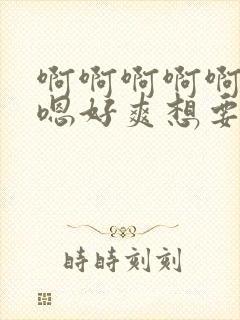 啊啊啊啊啊
嗯好爽想要
時時刻刻